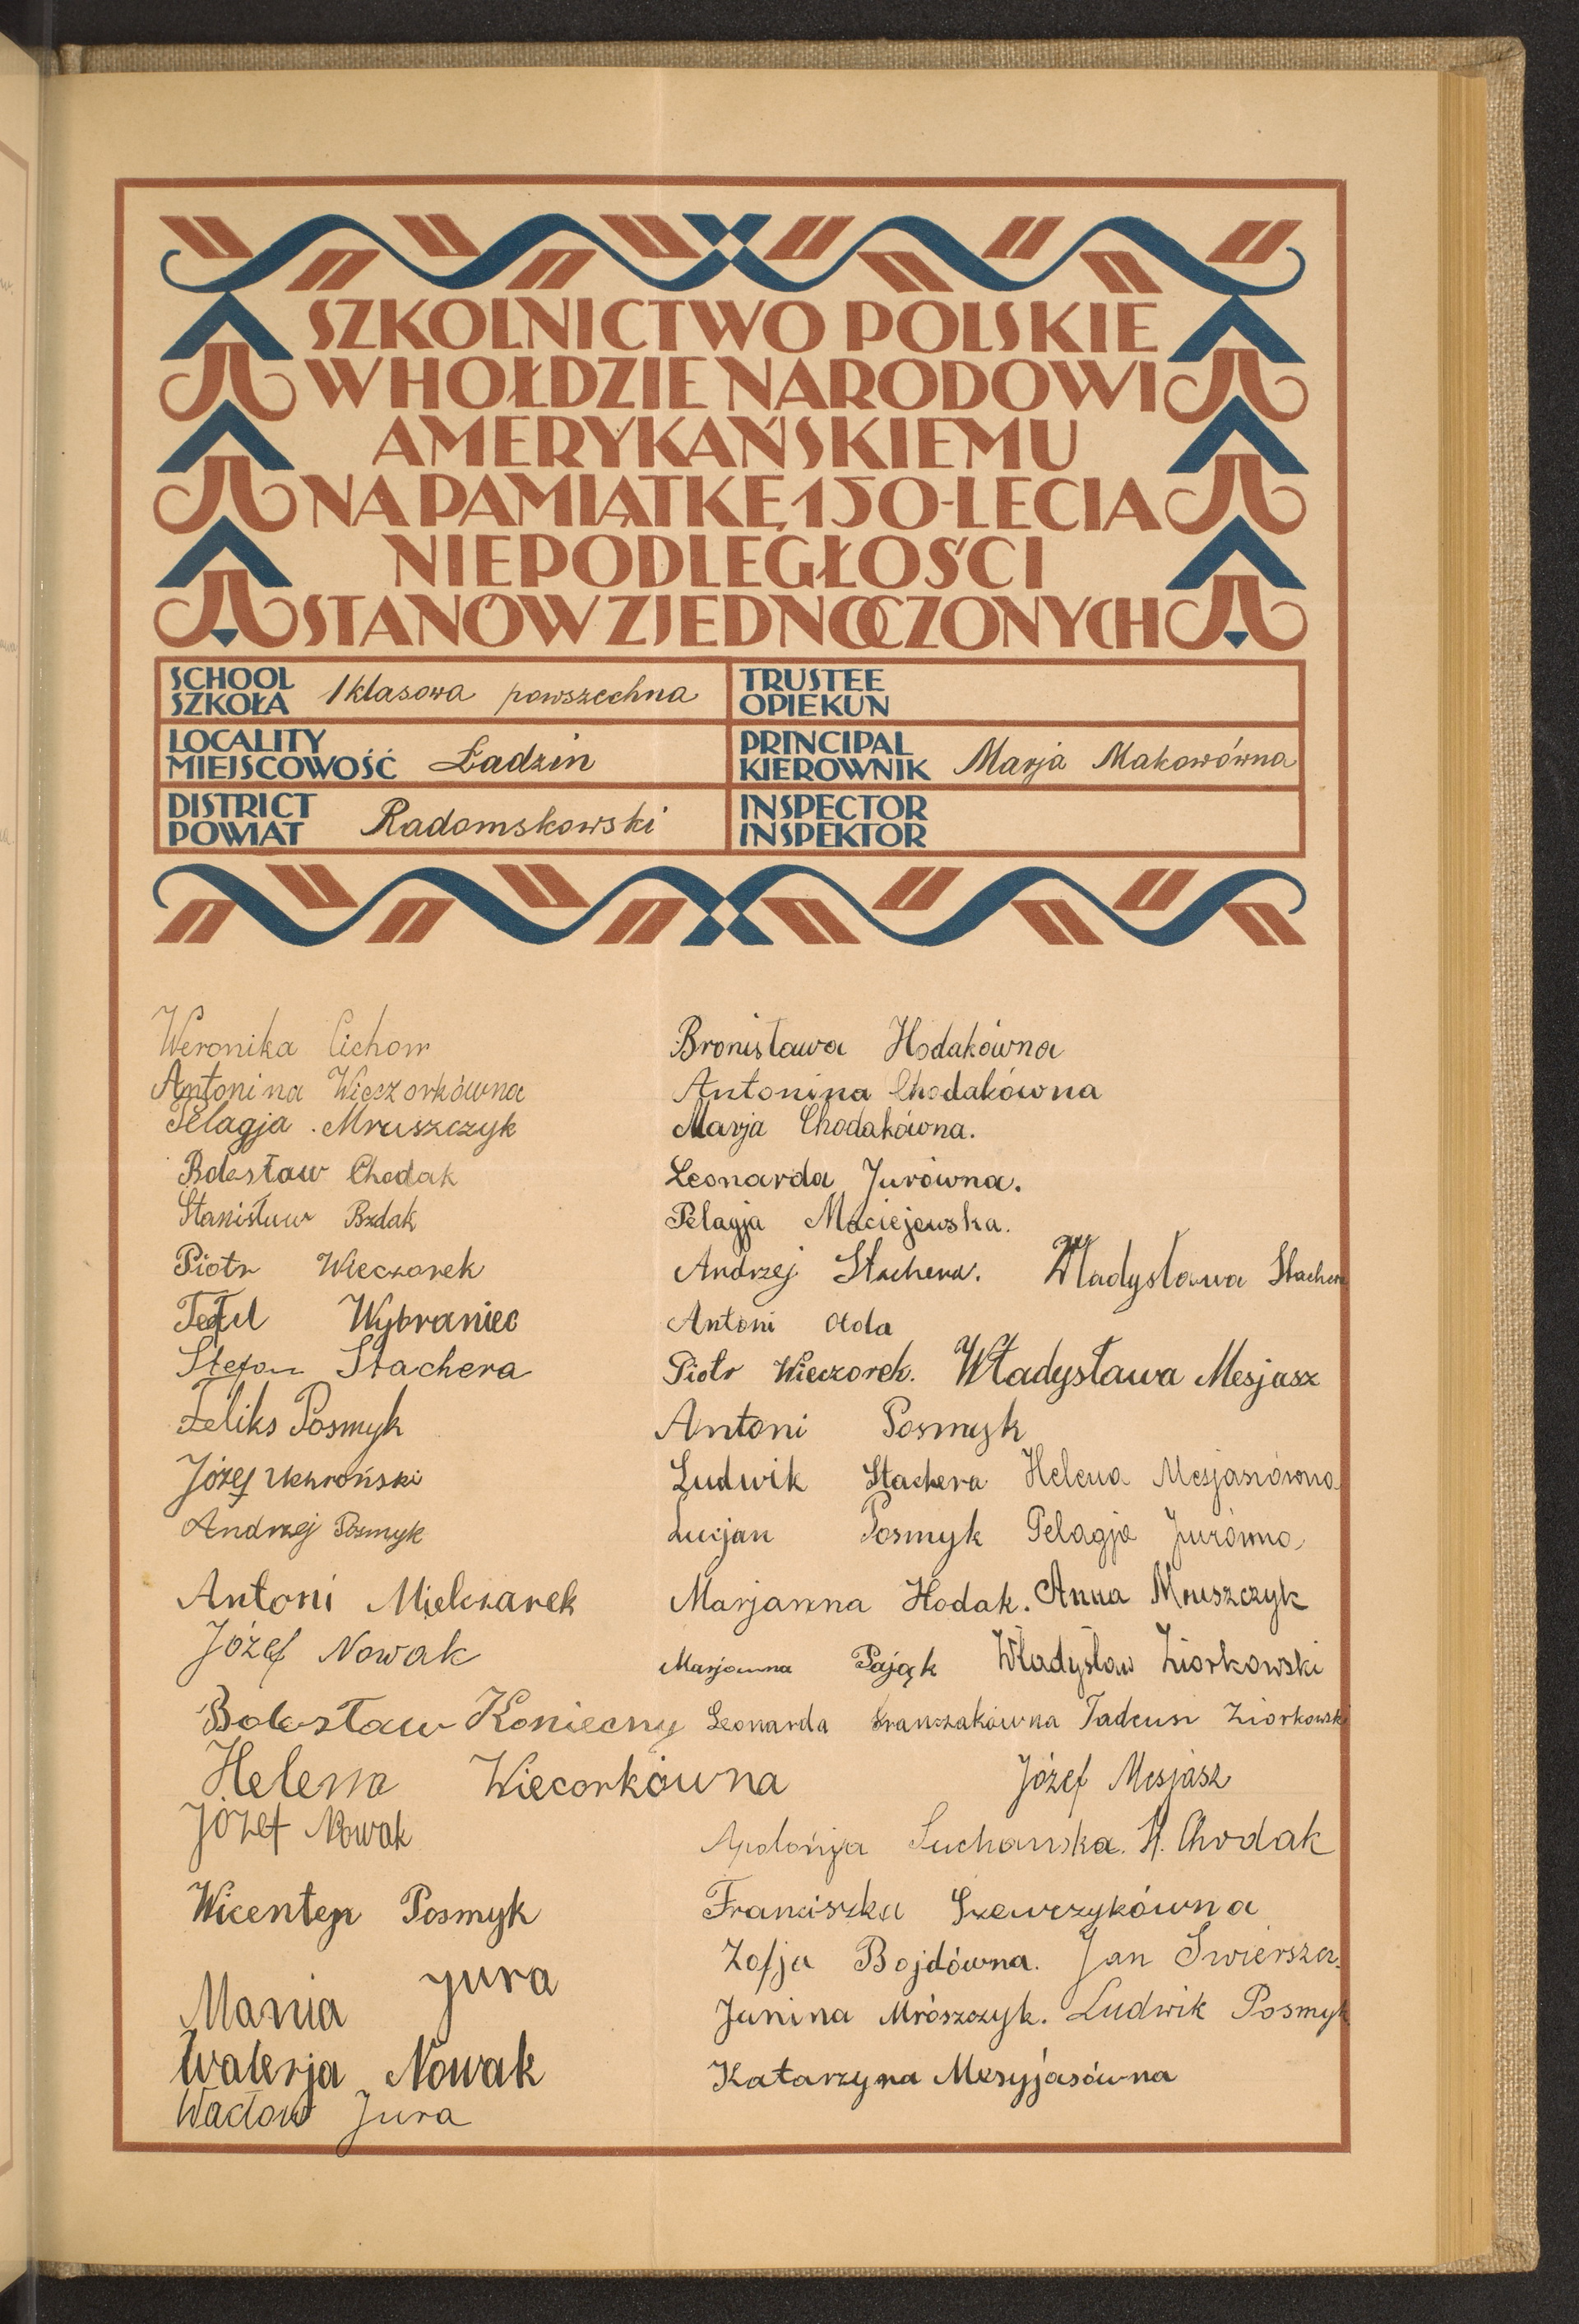 SZKOLNICTWO POLSKIE
W HOŁDZIE NARODOWI
AMERYKAŃSKIEMU
NA PAMIĄTKĘ 150-LECIA
NIEPODLEGŁOŚCI
STANÓW ZJEDNOCZONYCH
SCHOOL
SZKOŁA 1 klasowa powszechna
TRUSTEE
OPIEKUN
LOCALITY
MIEJSCOWOŚĆ Ładzin
PRINCIPAL
KIEROWNIK Marja Makowówna
DISTRICT
POWIAT Radomskowski
INSPECTOR
INSPEKTOR
Weronika Cichoń
Antonina Wieczorkówna
Pelagja Mruszczyk
Bolesław Chodak
Stanisław Bzdak
Piotr Wieczorek
Wybraniec
Stefan Stachera
Feliks Posmyk
Józef
Andrzej Posmyk
Antoni Mielczarek
Józef Nowak
Bolesław Konieczny
Helena Wiecorkówna
Józef Nowak
Wicenten Posmyk
Mania Jura
Walerja Nowak
Wacław Jura
Bronisława Hodakówna
Antonina Chodakówna
Marja Chodakówna.
Leonarda Jurówna.
Pelagja Maciejewska.
Andrzej Stachera. Władysława Stachera
Antoni
Piotr Wieczorek. Władysława Mesjasz
Antoni Posmyk
Ludwik Stachera Helena Mesjaszówna
Lucjan Posmyk Pelagja Jurówna
Marjanna Hodak. Anna Mruszczyk
Marjanna Pająk Władysław Ziorkowski
Leonarda Franczakówna Tadeusz Ziorkowski
Józef Mesjasz
Apolońja Suchańska. H. Chodak
Franciszka Szewczykówna
Zofja Bojdówna. Jan Swiersza.
Janina Mrószczyk. Ludwik Posmyk
Katarzyna Mesyjasówna